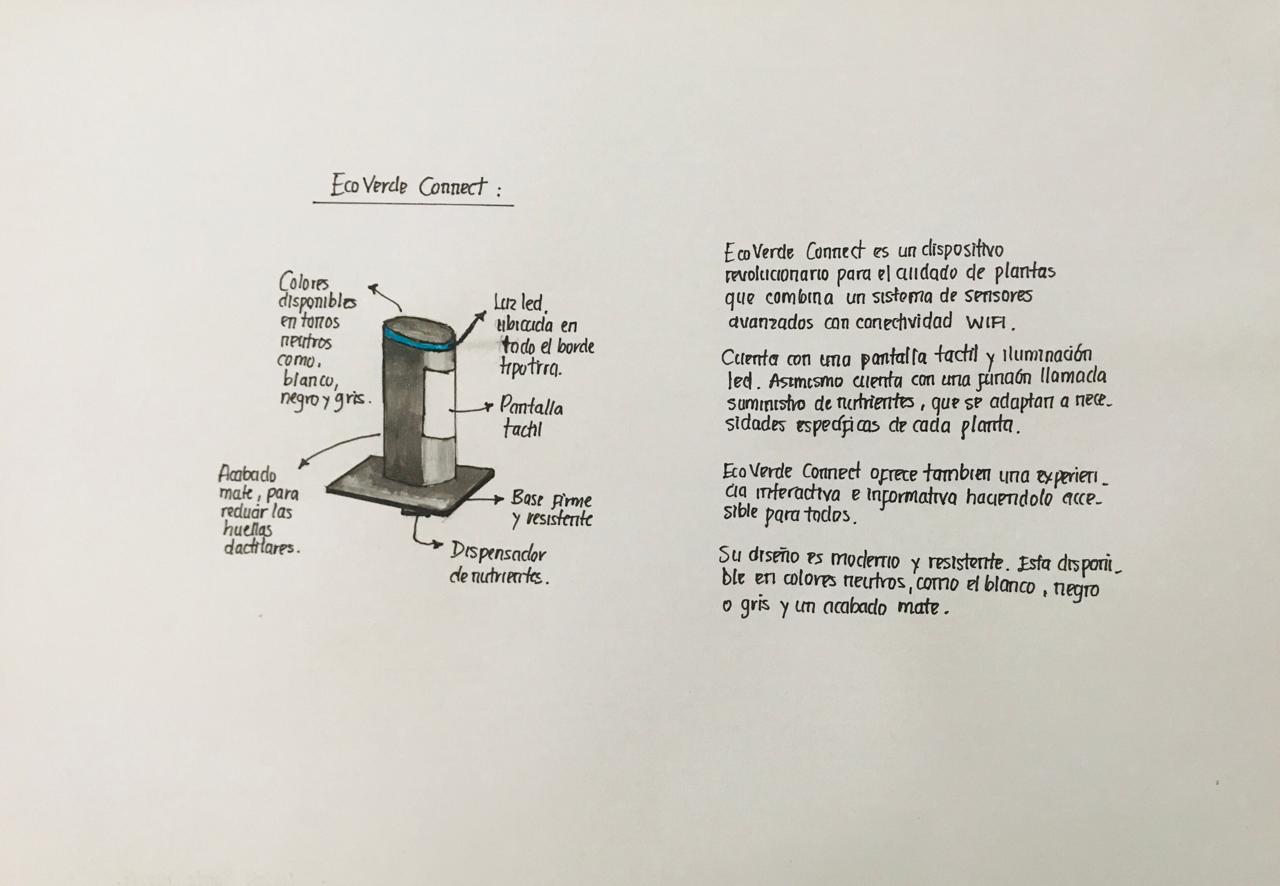 EcoVerde Connect :
Colores
disponibles
en tonos
neutros
como,
blanco,
negro y gris.
Luz led,
ubicada en
todo el borde
Pantalla
tactil
Acabado
mate, para
reducir las
huellas
dactilares.
Base firme
y resistente
Dispensador
de nutrientes.
EcoVerde Connect es un dispositivo
revolucionario para el cuidado de plantas
que combina un sistema de sensores
avanzados con conectividad WIFI.
Cuenta con una pantalla tactil y iluminación
led. Asimismo cuenta con una función llamada
suministro de nutrientes, que se adaptan a nece-
sidades específicas de cada planta.
EcoVerde Connect ofrece tambien una experien-
cia interactiva e informativa haciendolo acce-
sible para todos.
Su diseño es moderno y resistente. Esta disponi-
ble en colores neutros, como el blanco, negro
o gris y un acabado mate.